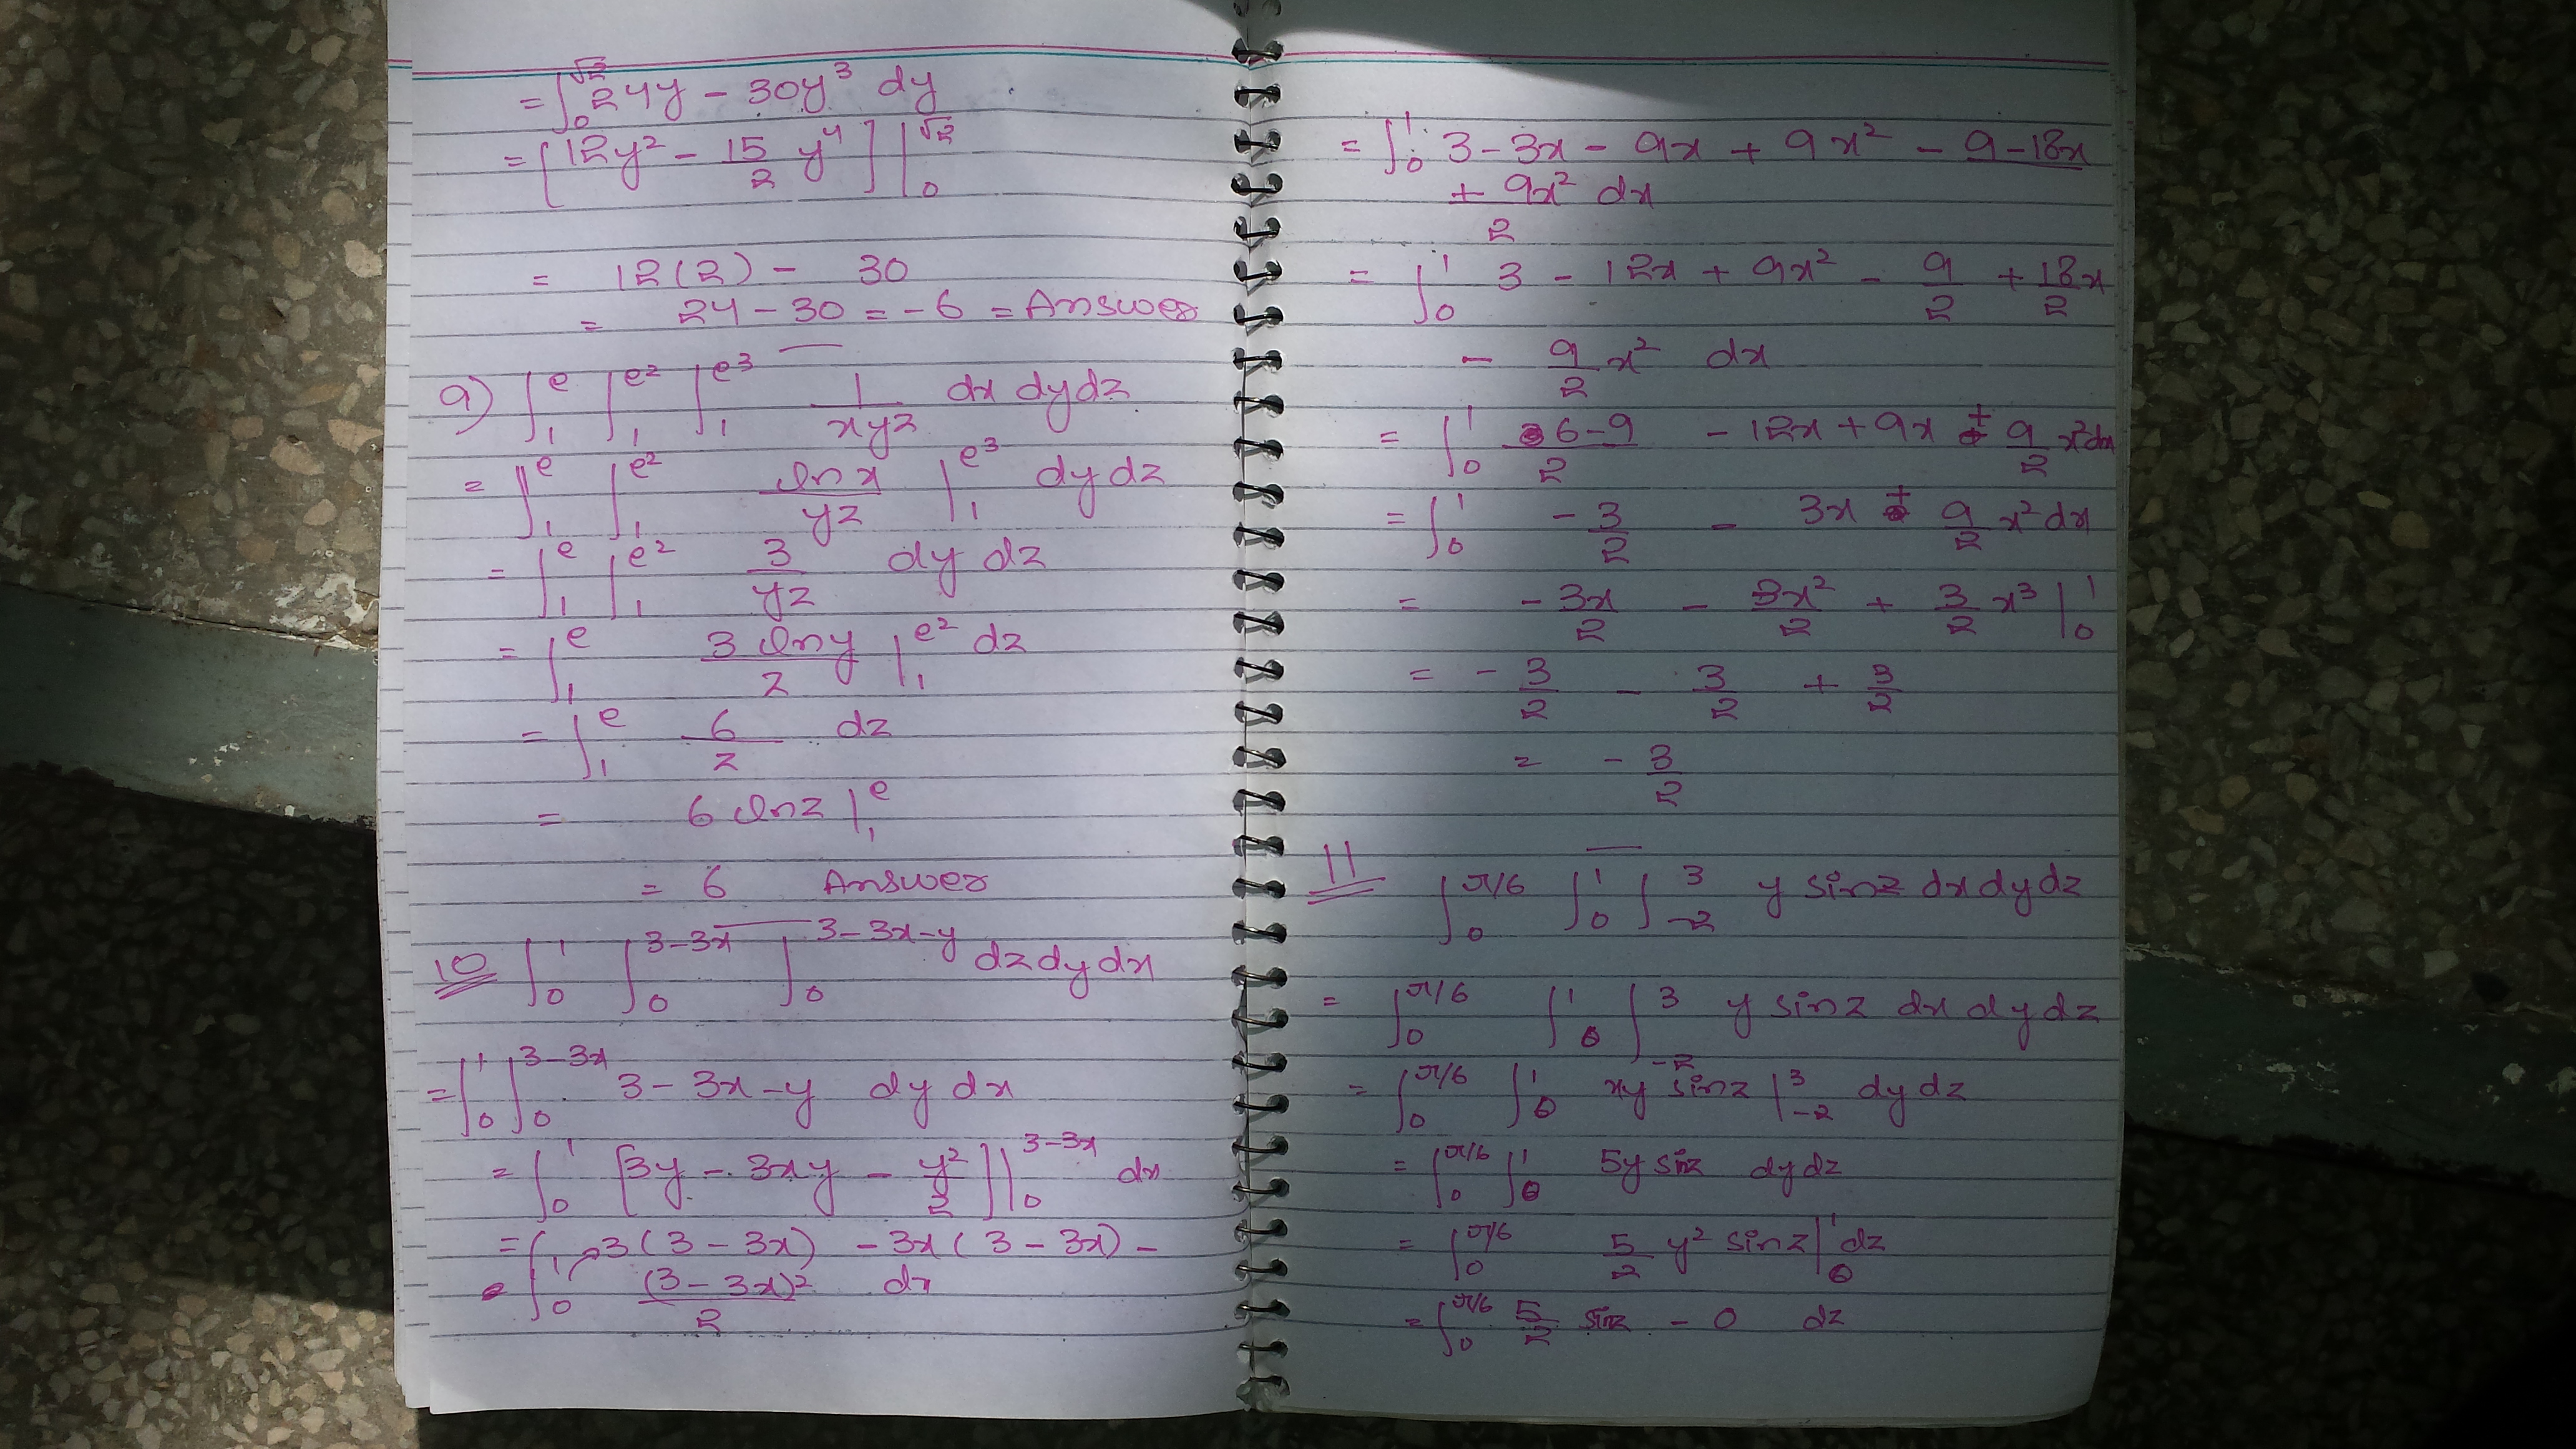 = ∫₀^√2 24y - 30y³ dy
= [12y² - 15/2 y⁴] |₀^√2
= 12(2) - 30
= 24 - 30 = -6 = Answer
9) ∫₁^e ∫₁^e² ∫₁^e³ 1/xyz dx dy dz
= ∫₁^e ∫₁^e² ln x/yz |₁^e³ dy dz
= ∫₁^e ∫₁^e² 3/yz dy dz
= ∫₁^e 3 ln y/z |₁^e² dz
= ∫₁^e 6/z dz
= 6 ln z |₁^e
= 6 Answer
10 ∫₀^1 ∫₀^3-3x ∫₀^3-3x-y dz dy dx
= ∫₀^1 ∫₀^3-3x 3 - 3x - y dy dx
= ∫₀^1 [3y - 3xy - y²/2] |₀^3-3x dx
= ∫₀^1 3(3 - 3x) - 3x(3 - 3x) -
(3 - 3x)²/2 dx
= ∫₀^1 3 - 3x - 9x + 9x² - 9 - 18x
+ 9x²/2 dx
= ∫₀^1 3 - 12x + 9x² - 9/2 + 18x/2
- 9/2 x² dx
= ∫₀^1 6-9/2 - 12x + 9x + 9/2 x² dx
= ∫₀^1 -3/2 - 3x + 9/2 x² dx
= -3x/2 - 3x²/2 + 3/2 x³ |₀^1
= -3/2 - 3/2 + 3/2
= -3/2
11 ∫₀^π/6 ∫₀^1 ∫₋₂^3 y sin z dx dy dz
= ∫₀^π/6 ∫₀^1 ∫₋₂^3 y sin z dx dy dz
= ∫₀^π/6 ∫₀^1 xy sin z |₋₂^3 dy dz
= ∫₀^π/6 ∫₀^1 5y sin z dy dz
= ∫₀^π/6 5/2 y² sin z |₀^1 dz
= ∫₀^π/6 5/2 sin z - 0 dz